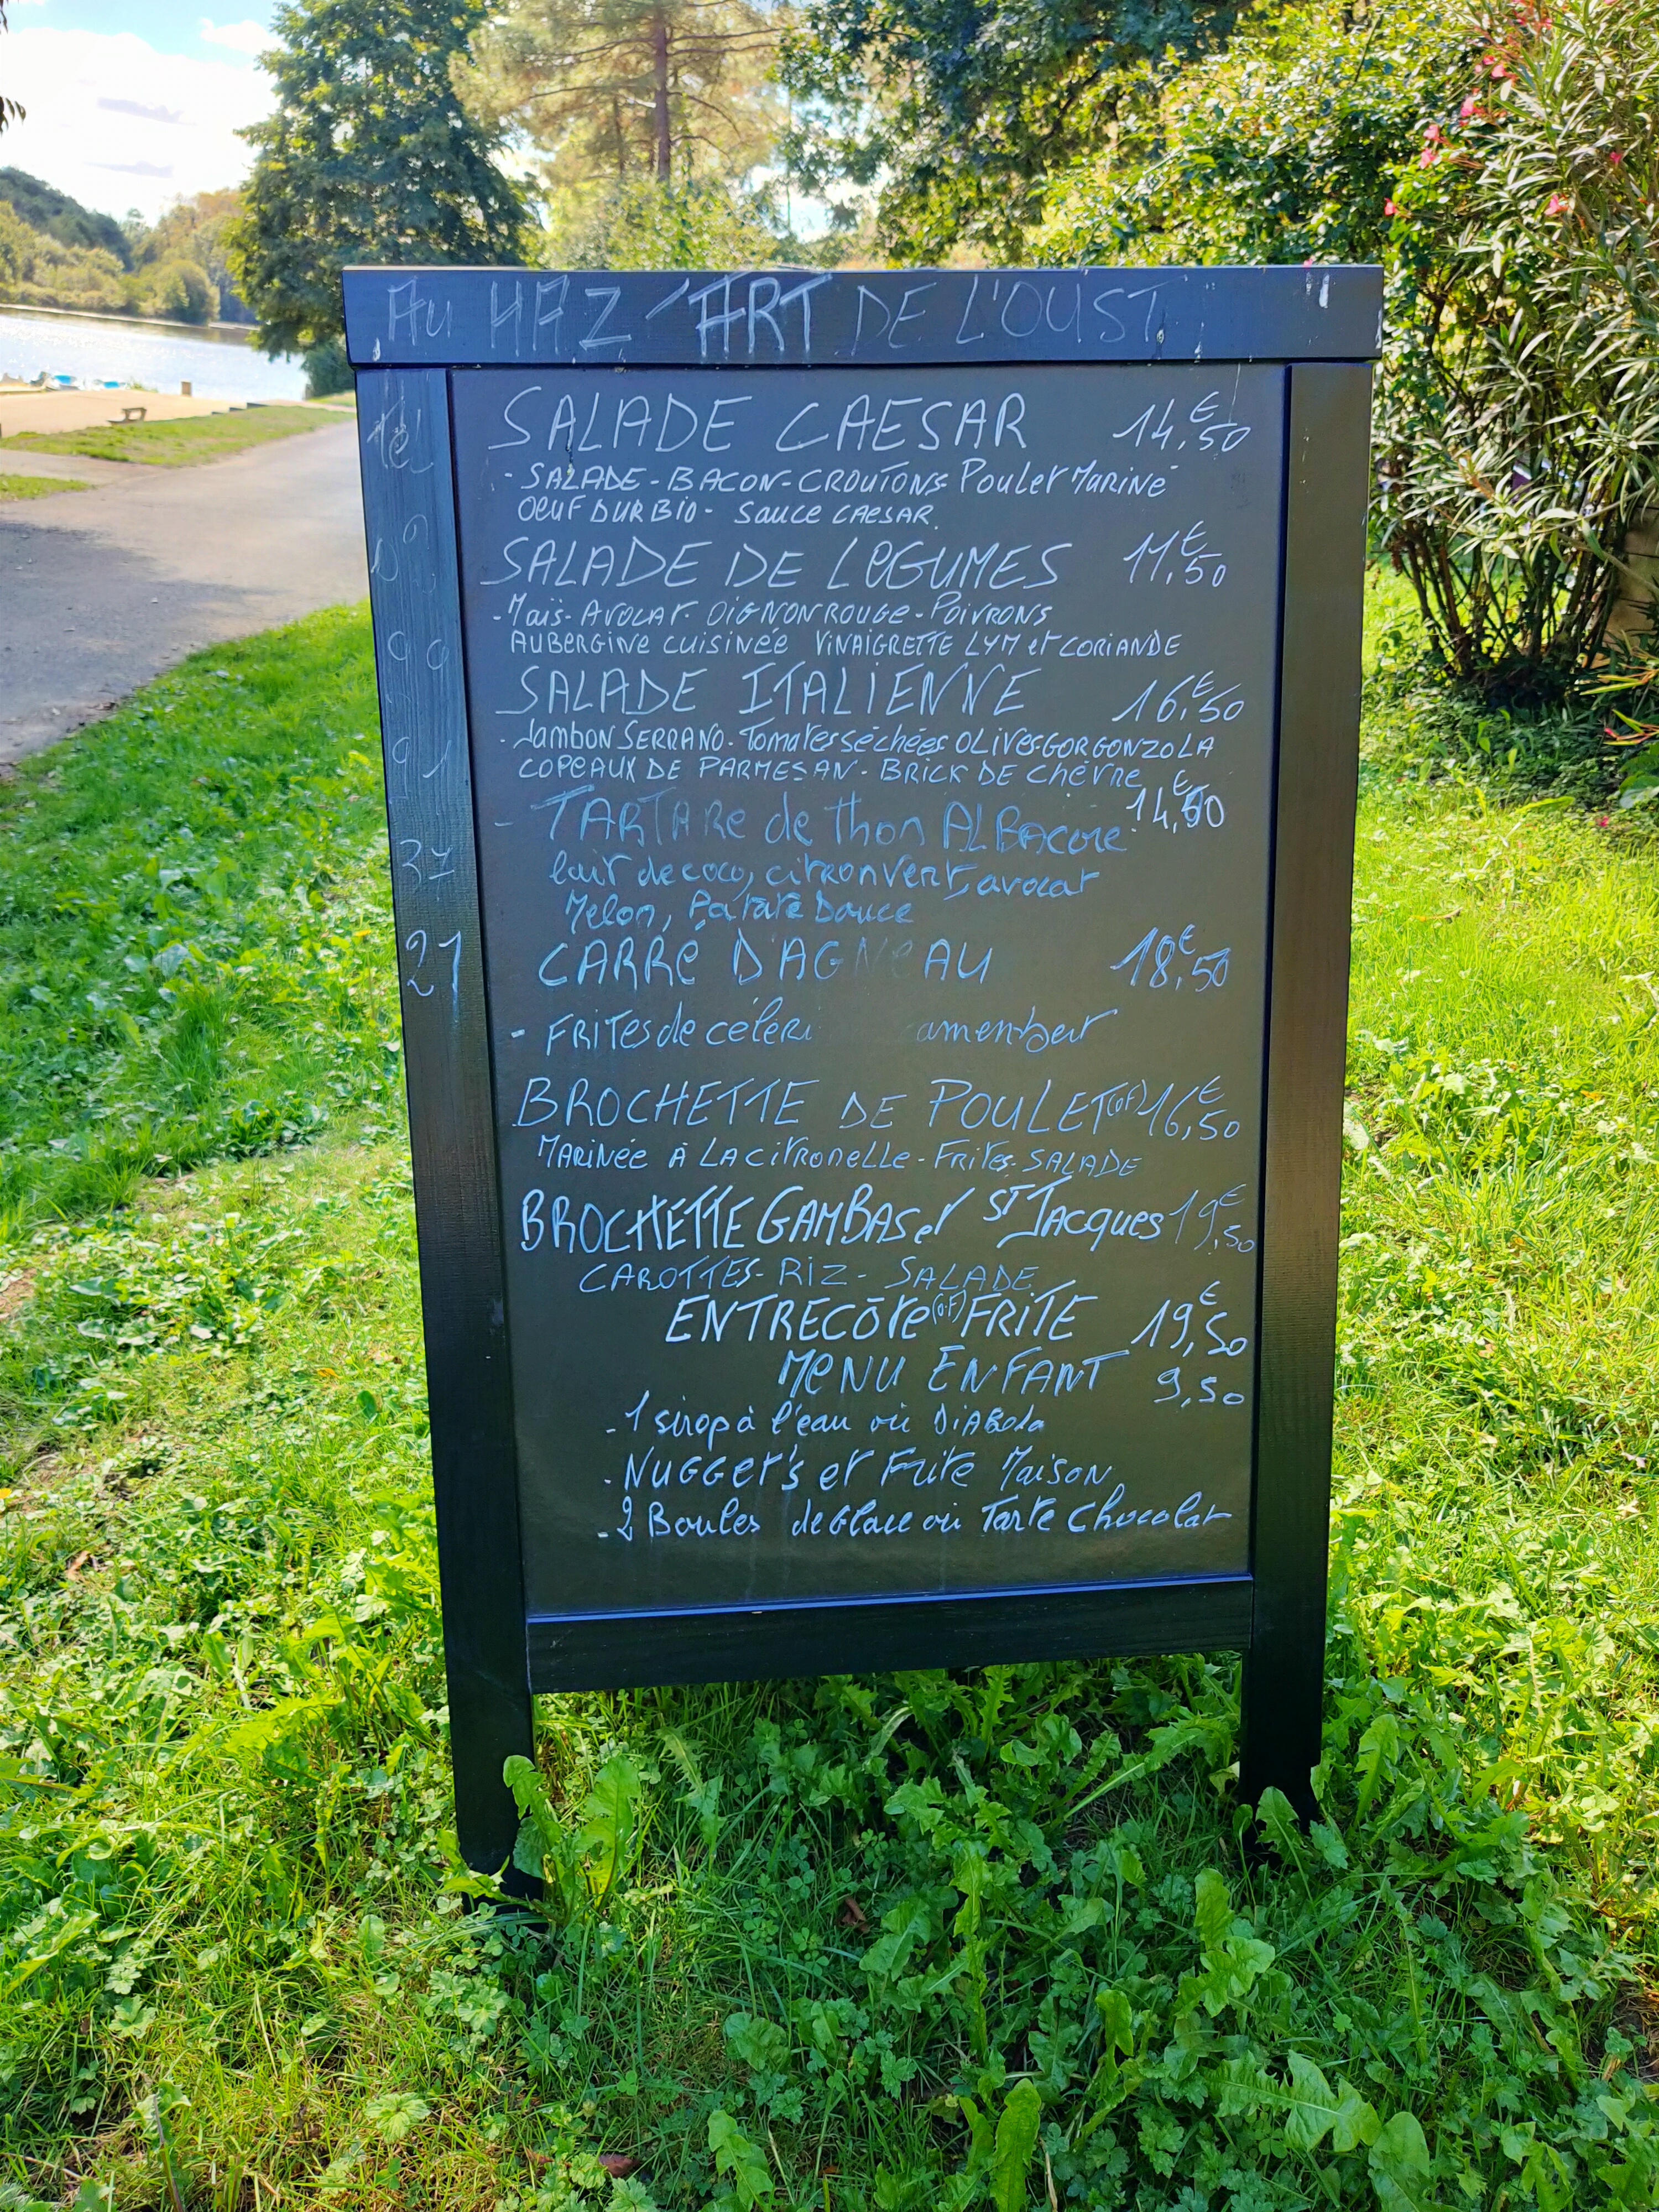 Au HAZ'ART DE L'OUST
Tél
SALADE CAESAR 14,50€
- SALADE - BACON - CROUTONS Poulet Mariné
OEUF DUR BIO - Sauce CAESAR.
SALADE DE LEGUMES 11,50€
- Maïs - AVOCAT - OIGNON ROUGE - POIVRONS
AUBERGINE CUISINÉE VINAIGRETTE LYM et CORIANDE
99
SALADE ITALIENNE 16,50€
- Jambon SERRANO - Tomates séchées OLIVES GORGONZOLA
91
COPEAUX DE PARMESAN - BRICK DE Chèvre
- TARTARE de thon ALBACORE 14,50€
37
lait de coco, citron vert, avocat
Melon, Patate Douce
21
CARRÉ D'AGNEAU 18,50€
- FRITES de céleri amenbert
BROCHETTE DE POULET (OF) 16,50€
MARINÉE À LA CITRONELLE - Frites - SALADE
BROCHETTE GAMBAS et ST JACQUES 19,50€
CAROTTES - RIZ - SALADE
ENTRECÔTE (O.F) FRITE 19,50€
MENU ENFANT 9,50
- 1 sirop à l'eau ou DIABOLO
- NUGGET'S et Frite MAISON
- 2 Boules de Glace ou Tarte Chocolat